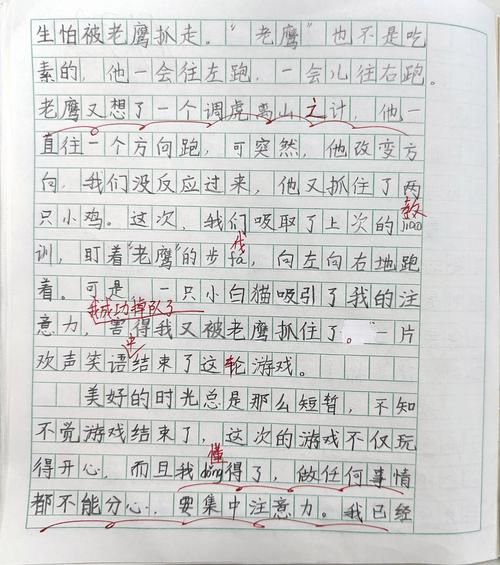 生怕被老鹰抓走。“老鹰”也不是吃
素的，他一会往左跑，一会儿往右跑。
老鹰又想了一个调虎离山之计，他一
直往一个方向跑，可突然，他改变方
向，我们没反应过来，他又抓住了两
只小鸡。这次，我们吸取了上次的jiào
教
训，盯着“老鹰”的步fá，向左向右地跑
伐
着。可是，一只小白猫吸引了我的注
我成功掉队了
意力，害得我又被老鹰抓住了。一片
欢声笑语结束了这轮游戏。
中
美好的时光总是那么短暂，不知
不觉游戏结束了，这次的游戏不仅玩
得开心，而且我dǒng得了，做任何事情
懂
都不能分心，要集中注意力。我已经